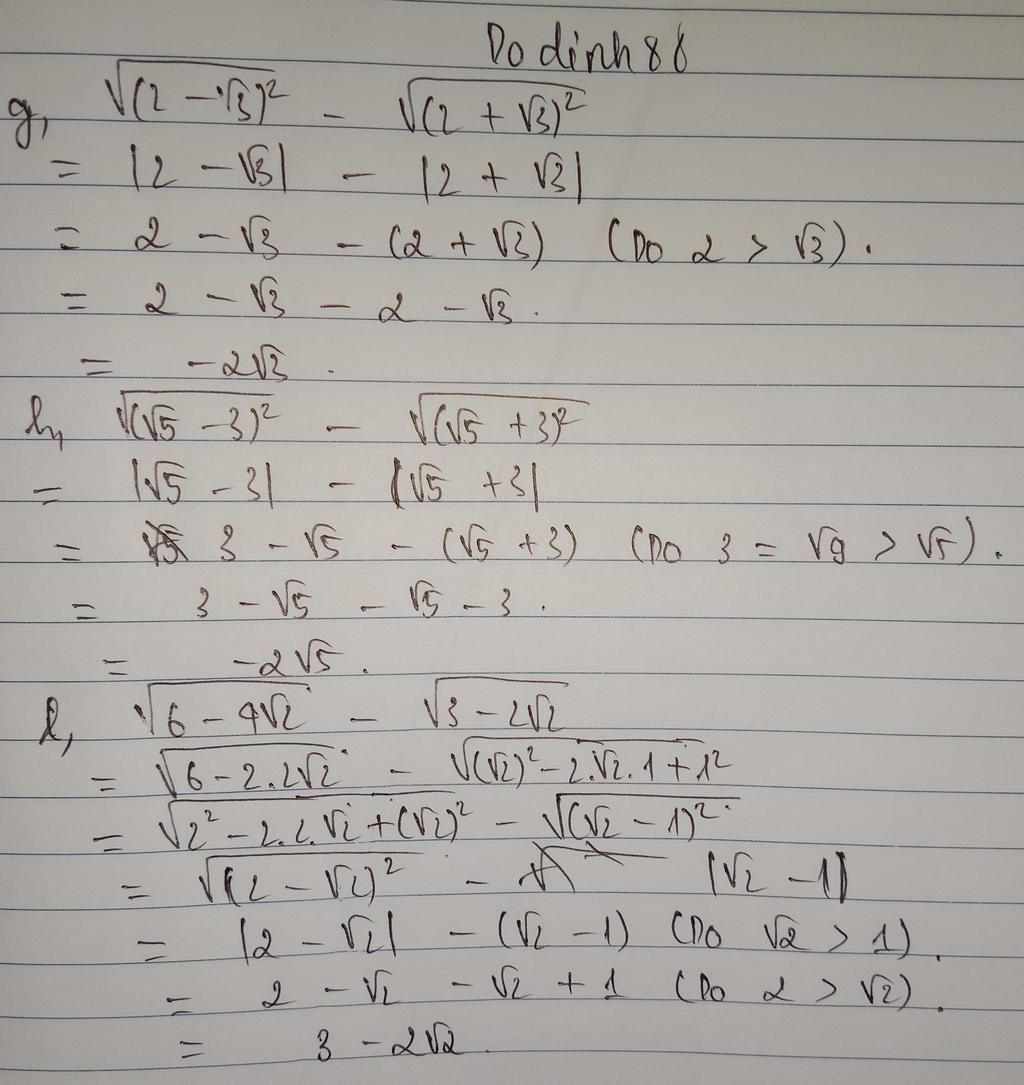 Do dinh 88
g, √(2 - √3)² - √(2 + √3)²
= |2 - √3| - |2 + √3|
= 2 - √3 - (2 + √3) (Do 2 > √3).
= 2 - √3 - 2 - √3.
= -2√3.
h, √(√5 - 3)² - √(√5 + 3)²
= |√5 - 3| - |√5 + 3|
= 3 - √5 - (√5 + 3) (Do 3 = √9 > √5).
= 3 - √5 - √5 - 3.
= -2√5.
l, √6 - 4√2 - √3 - 2√2
= √6 - 2.2√2 - √(√2)² - 2.√2.1 + 1²
= √2² - 2.2.√2 + (√2)² - √(√2 - 1)²
= √(2 - √2)² - |√2 - 1|
= |2 - √2| - (√2 - 1) (Do √2 > 1).
= 2 - √2 - √2 + 1 (Do 2 > √2).
= 3 - 2√2.